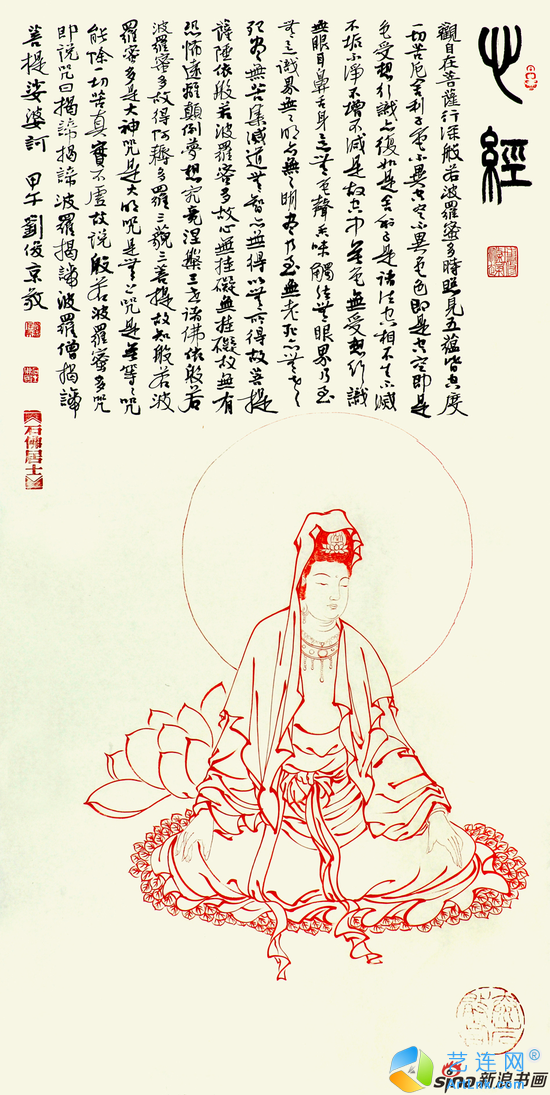 心經
觀自在菩薩行深般若波羅蜜多時照見五蘊皆空度
一切苦厄舍利子色不異空空不異色色即是空空即是
色受想行識亦復如是舍利子是諸法空相不生不滅
不垢不淨不增不減是故空中無色無受想行識
無眼耳鼻舌身意無色聲香味觸法無眼界乃至
無意識界無無明亦無無明盡乃至無老死亦無老
死盡無苦集滅道無智亦無得以無所得故菩提
薩陲依般若波羅蜜多故心無挂礙無挂礙故無有
恐怖遠離顛倒夢想究竟涅槃三世諸佛依般若
波羅蜜多故得阿耨多羅三藐三菩提故知般若波
羅蜜多是大神咒是大明咒是無上咒是無等々咒
能除一切苦真實不虛故說般若波羅蜜多咒
即說咒曰揭諦揭諦波羅揭諦波羅僧揭諦
菩提娑婆訶 甲午 劉俊京敬
石佛居士
艺连网
sina 新浪书画